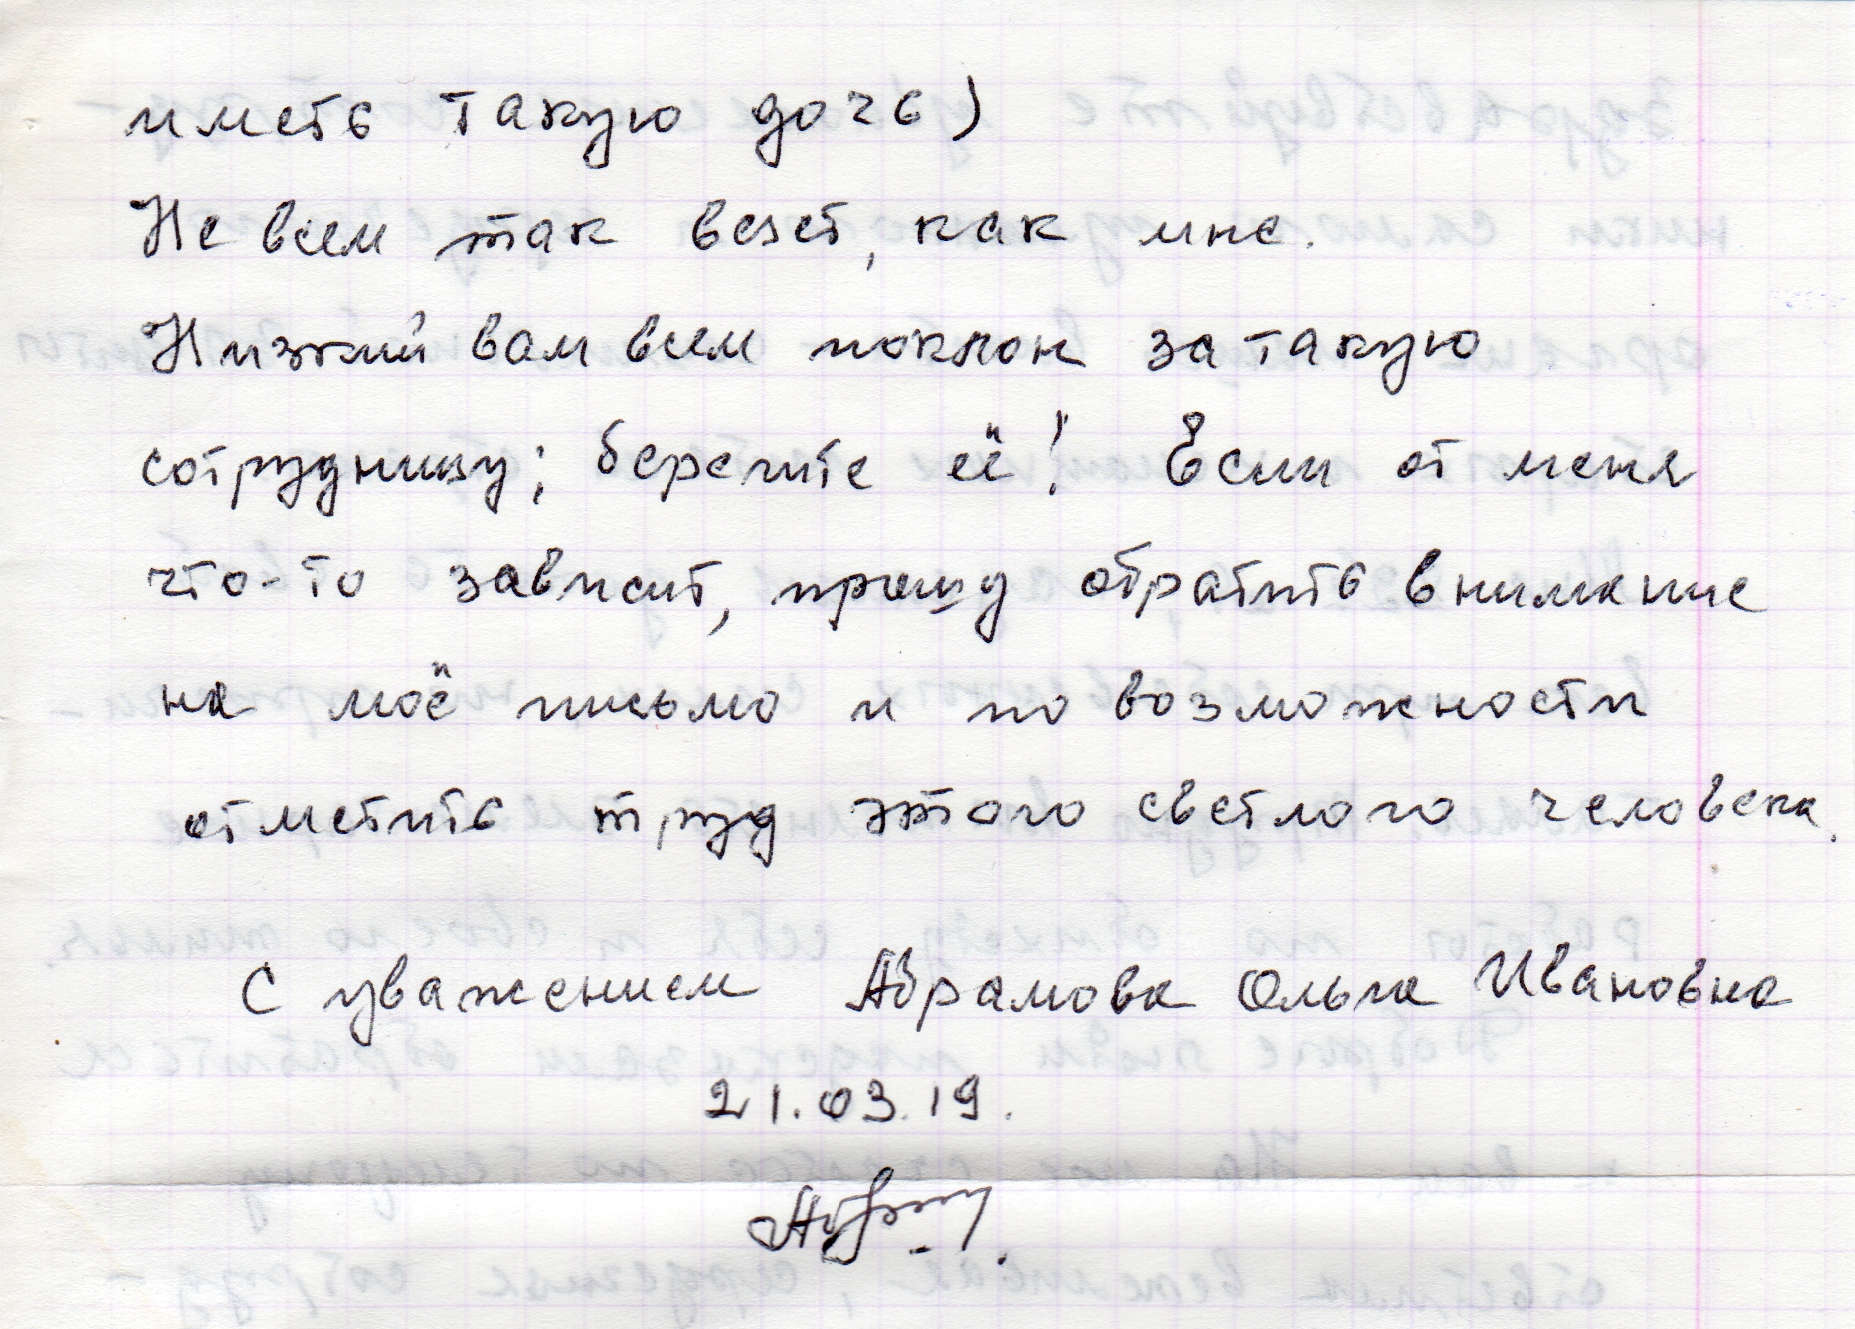 иметь такую дочь)
Не всем так везет, как мне.
Низкий вам всем поклон за такую
сотрудницу; берегите её! Если от меня
что-то зависит, прошу обратить внимание
на моё письмо и по возможности
отметить труд этого светлого человека.
С уважением Абрамова Ольга Ивановна
21.03.19.